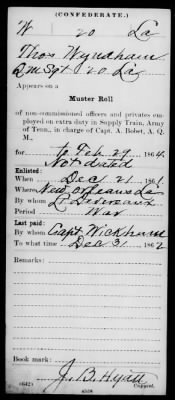 (CONFEDERATE.)
W 20 La
Thos Wyndham
Q M Sgt 20 La
Appears on a
Muster Roll
of non-commissioned officers and privates employed on extra duty in Supply Train, Army of Tenn., in charge of Capt. A. Bobet, A. Q. M.,
for to Feb 29 1864
Not dated
Enlisted:
When Dec 21 1861
Where New Orleans La
By whom
Period War
Last paid:
By whom Capt Wickhurst
To what time Dec 31 1862
Remarks:
Book mark:
J. B. Hyatt
(642) Copyist.